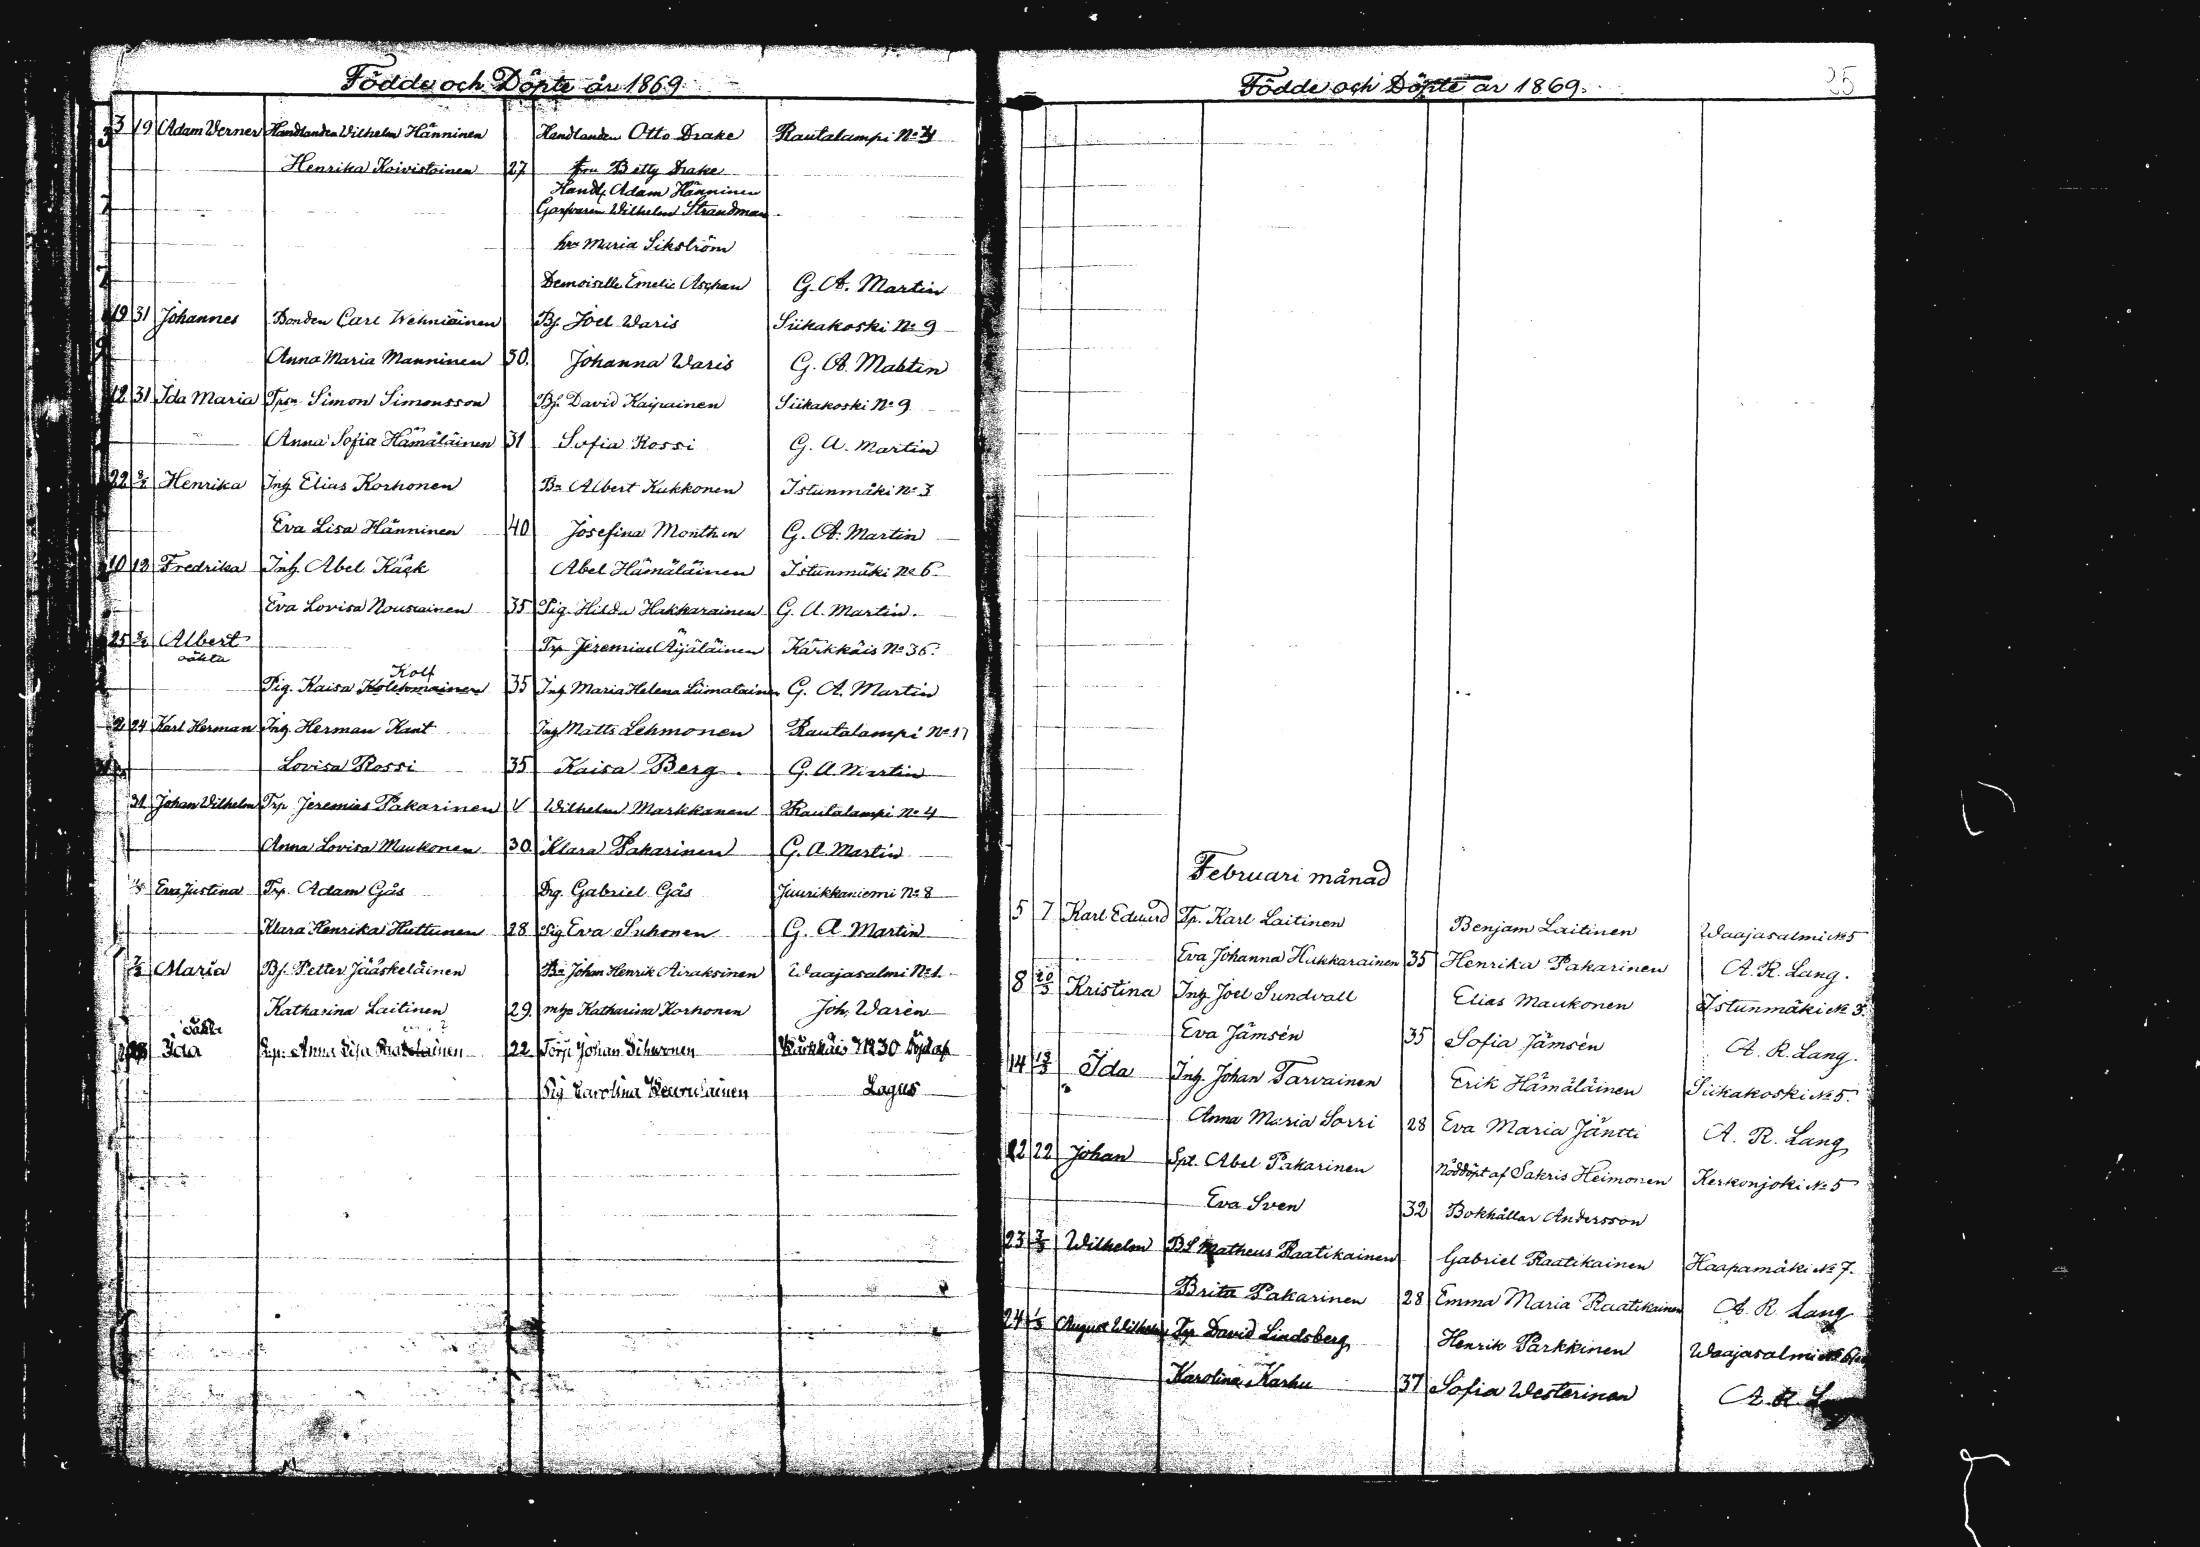 Födde och Döpte år 1869
3 19 Adam Verner Handlanden Wilhelm Hänninen Handlanden Otto Drake Rautalampi No 34
Henrika Koivistoinen 27 fru Betty Drake
Handl. Adam Hänninen
Garfvaren Wilhelm Strandman
Maria Sikström
Demoiselle Emelie Aschan G. A. Martin
19 31 Johannes Bonden Carl Wehniäinen Bf. Joel Waris Siikakoski No 9
Anna Maria Manninen 30. Johanna Waris G. A. Martin
12 31 Ida Maria Tpsn Simon Simonsson Bf. David Kaipainen Siikakoski No 9
Anna Sofia Hämäläinen 31 Sofia Rossi G. A. Martin
22 Henrika Inh. Elias Korhonen Bn Albert Kukkonen Istunmäki No 3
Eva Lisa Hänninen 40 Josefina Monthen G. A. Martin
10 12 Fredrika Inh. Abel Käck Abel Hämäläinen Istunmäki No 6.
Eva Lovisa Nousiainen 35 Pig. Hilda Hakkarainen G. A. Martin.
25 Albert Trp Jeremias Äijäläinen Kärkkäis No 36.
oäkta
Kolf
Pig. Kaisa Kolehmainen 35 Inh. Maria Helena Liimatainen G. A. Martin
24 Karl Herman Inh. Herman Kant Inh. Matts Lehmonen Rautalampi No 17
Lovisa Rossi 35 Kaisa Berg. G. A. Martin
31 Johan Wilhelm Trp Jeremias Pakarinen V Wilhelm Markkanen Rautalampi No 4
Anna Lovisa Maukonen 30 Klara Pakarinen G. A. Martin
Eva Justina Trp. Adam Gås Drg. Gabriel Gås Juurikkaniemi No 8
Klara Henrika Huttunen 28 Pig Eva Suhonen G. A. Martin
Maria Bf. Petter Jääskeläinen Bn Johan Henrik Airaksinen Waajasalmi No 1.
Katharina Laitinen 29. Katharina Korhonen Joh. Warén
oäkta
Ida Anna Lisa 22 Johan Sihwonen Kärkkäis No 30 Döpt af
Pig Carolina Lagus
Födde och Döpte år 1869. 25
Februari månad
5 7 Karl Eduard Tp. Karl Laitinen Benjam Laitinen Waajasalmi No 5
Eva Johanna Hukkarainen 35 Henrika Pakarinen A. R. Lang.
8 20/3 Kristina Inh. Joel Sundvall Elias Maukonen Istunmäki No 3.
Eva Jämsén 35 Sofia Jämsén A. R. Lang.
14 Ida Inh. Johan Tarvainen Erik Hämäläinen Siikakoski No 5.
Anna Maria Sorri 28 Eva Maria Jäntti A. R. Lang
22 22 Johan Spt. Abel Pakarinen Nöddöpt af Sakris Heimonen Kerkonjoki No 5
Eva Sven 32 Bokhållar Andersson
23 Wilhelm Bf Matheus Raatikainen Gabriel Raatikainen Haapamäki No 7.
Brita Pakarinen 28 Emma Maria Raatikainen A. R. Lang
24 August Wilhelm Trp David Lindsberg Henrik Parkkinen Waajasalmi
Karolina Karhu 37 Sofia Westerinen A. R. Lang